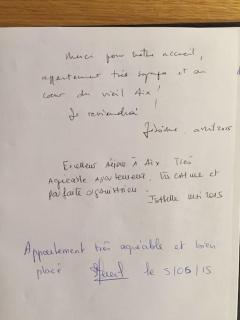 Merci pour votre accueil,
appartement très sympa et au
coeur du vieil Aix !
Je reviendrai !
avril 2015
Excellent séjour à Aix Très
agréable appartement, et
parfaite organisation.
Isabelle mai 2015
Appartement très agréable et bien
placé le 5/06/15